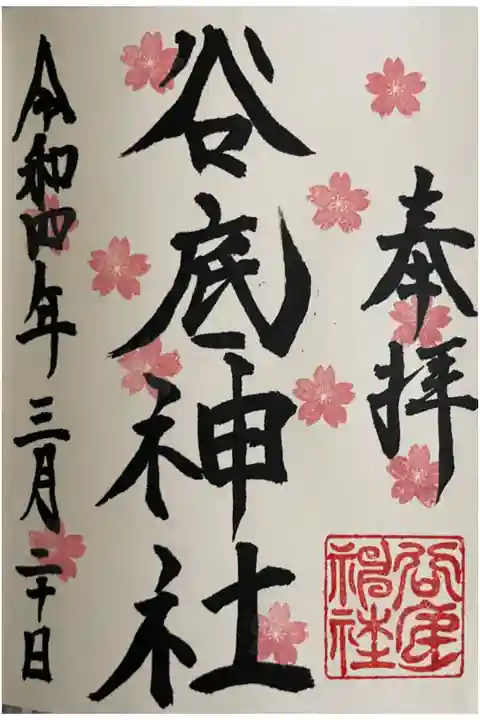 奉拝
谷底神社
谷底神社
令和四年三月二十日